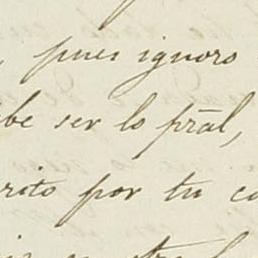 , pues ignoro
be ser lo prāl,
rito por tu co